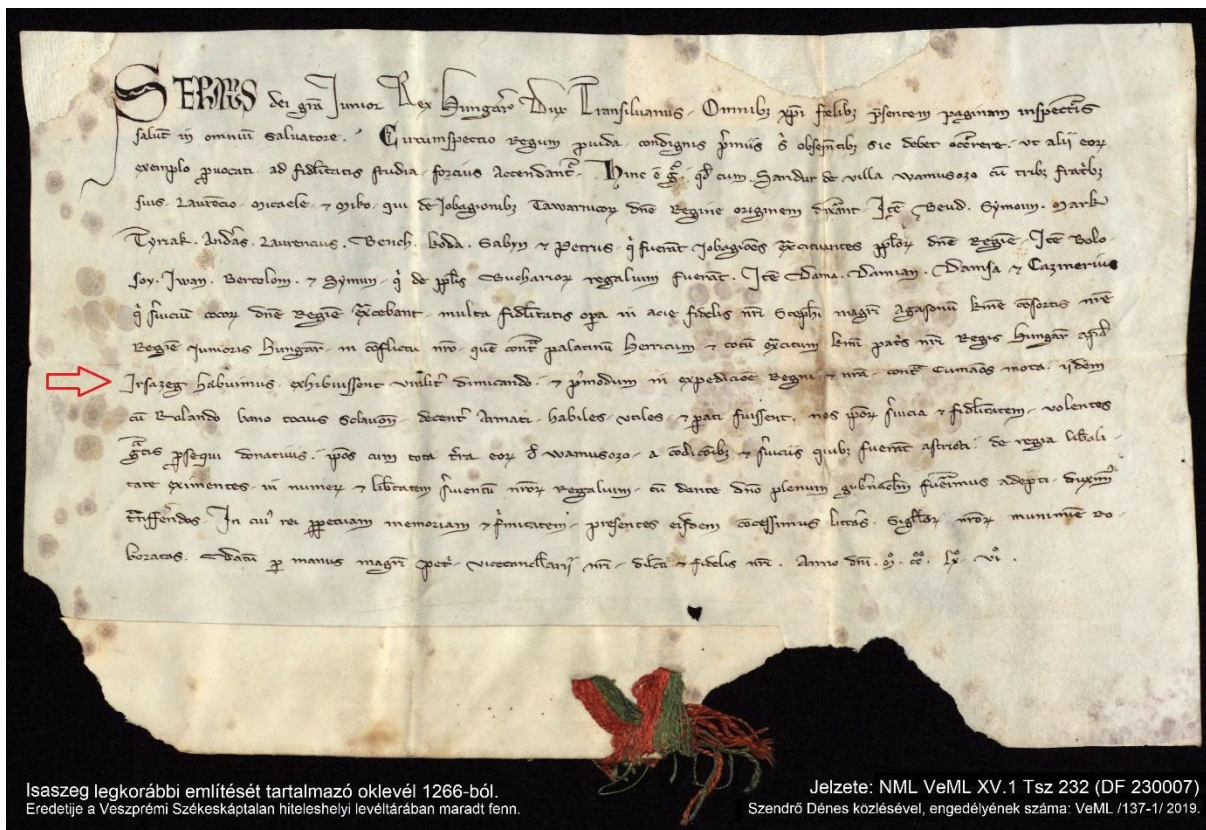 STEPHAN9 dei grā Junior Rex Hungarō Dux Transiluanus. Omnibȝ xp̄i fidelibȝ p̄sentem paginam inspectīs
salutē in omniū saluatore. Circumspectio Regum puida. condignis p̄miis obsequētibȝ sic debet occurrere. vt alii eorȝ
exemplo puocati. ad fidelitatis studia. forcius Accendant̄. Hinc ē qd cum. Sandur de villa wamusozo cū tribȝ fratribȝ
suis. Laurēcio. Micaele. ⁊ Miko. qui de Jobagionibȝ Tawarnicorȝ dn̄e Regine originem dixerant. Itē Beud. Symoun. Mark
Tyriak. Andās. Laurencius. Bench. koda. Sabyn ⁊ Petrus. qi fuerāt Jobagiōes exercituantes pplorȝ dn̄e Regīe. Itē Bolo-
soy. Iwan. Bertolom. ⁊ Symun. qi de pplis Buchariorȝ regalium fuerāt. Itē Dama. Damian. Damsa ⁊ Cazmerius
qi s̄uiciū cocorȝ dn̄e Regīe excebant. multa fidelitatis opa in acie fidelis nr̄i Steph̄i magr̄i Agasonū kme cōsortis nr̄e
Regīe Junioris Hungar̄. in cōflictu nr̄o. quē cont̄ palatinū Herricum ⁊ totū ex̄citum kmi pat̄s nr̄i Regis Hungar̄ apud
Irsazeg habuimus. exhibuissent uirilit̄ dimicando. ⁊ p̄modum in expediciōe Regni ⁊ nr̄a. cont̄ Cumāos mota. iidem
cū Rolando bano tocius Sclauoñ. decent̄ Armati. habiles. vtiles. ⁊ parati fuissent. nos ipsorȝ s̄uicia ⁊ fidelitatem. volentes
grātis psequi donatiuis. ipōs cum tota t̄ra eorȝ d̄ wamusozo. a cōdiciōibȝ ⁊ s̄uiciis quibȝ fuerāt astricti. de regia lib̄ali-
tate eximentes. in numerȝ ⁊ lib̄tatem s̄uientiū nr̄orȝ Regalium. cū dante dn̄o plenum gub̄nacl̄m fuerimus adepti. duxim9
t̄nsferēdos. In cui9 rei ppetuam memoriam ⁊ f̄mitatem. presentes eisdem cōcessimus litt̄as. Sigillorȝ nr̄orȝ munimīe Ro-
boratas. Datū p manus magr̄i Pet̄. vicecancellarij nr̄i. dilc̄ti ⁊ fidelis nr̄i. Anno dn̄i. mº. ccº. lxº. viº.
Isaszeg legkorábbi említését tartalmazó oklevél 1266-ból.
Eredetije a Veszprémi Székeskáptalan hiteleshelyi levéltárában maradt fenn.
Jelzete: NML VeML XV.1 Tsz 232 (DF 230007)
Szendrő Dénes közlésével, engedélyének száma: VeML /137-1/ 2019.